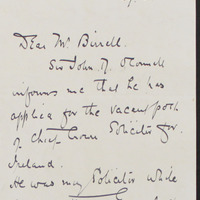 Dear Mr Birrell.
Sir John R. O'Connell
informs me that he has
applied for the vacant post
of Chief Crown Solicitor for
Ireland.
He was my Solicitor while